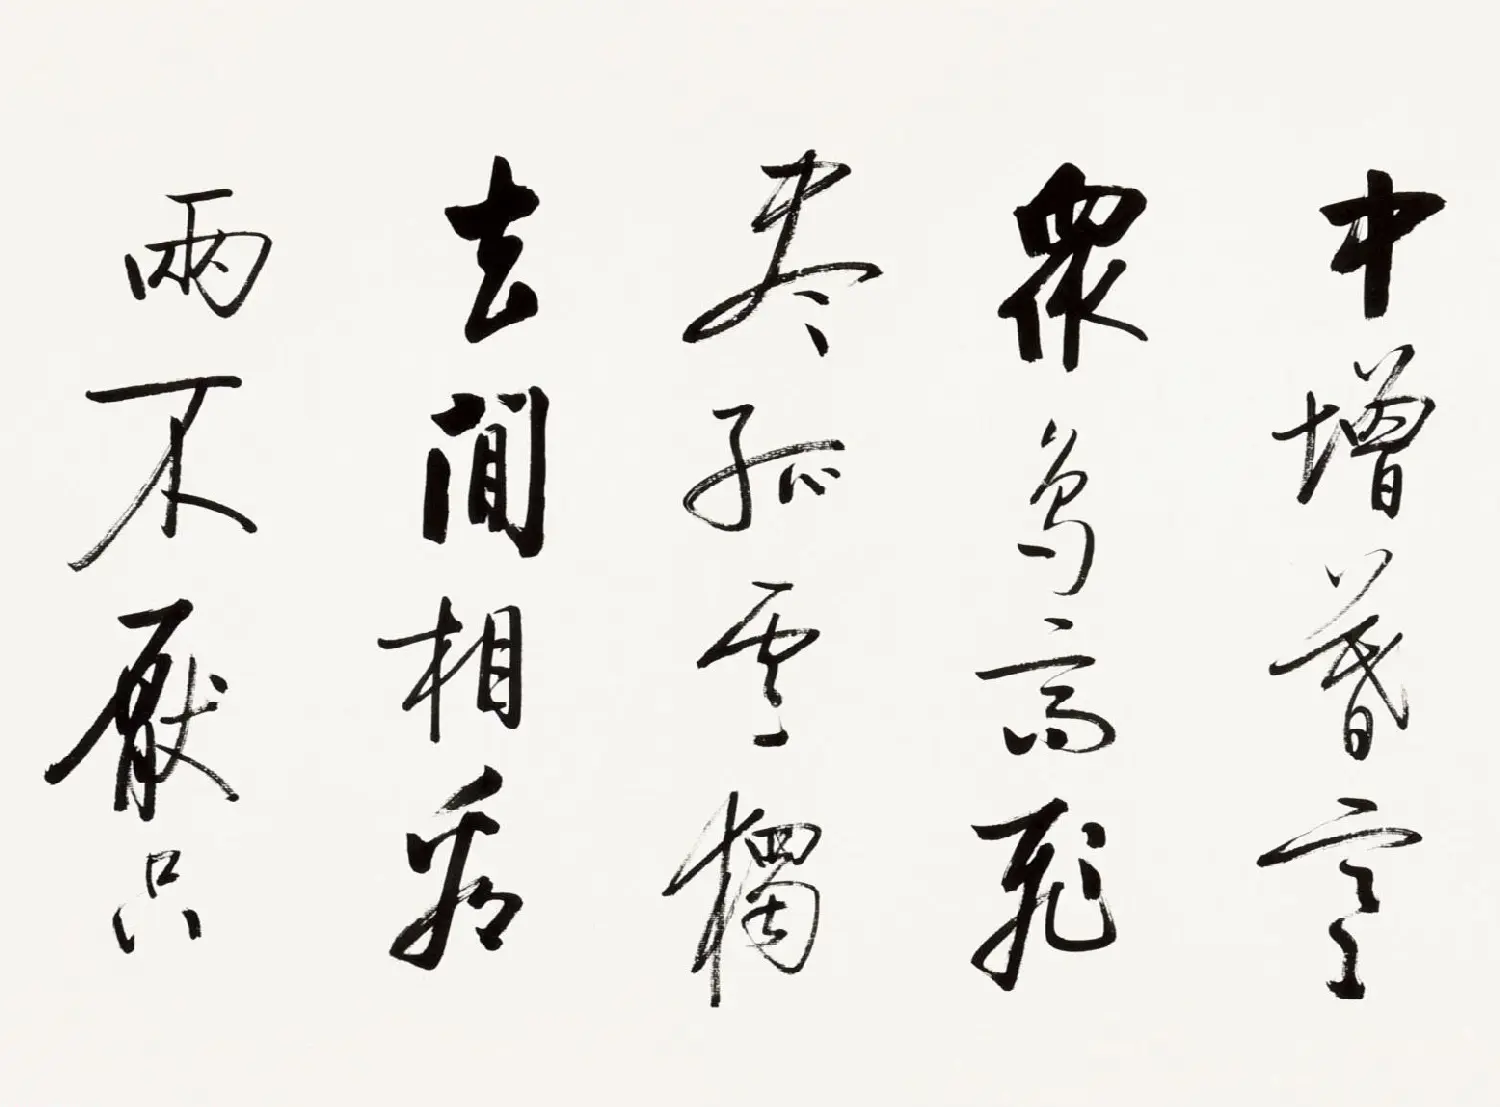 中增暮寒
眾鳥高飛
盡孤雲獨
去閒相看
兩不厭只